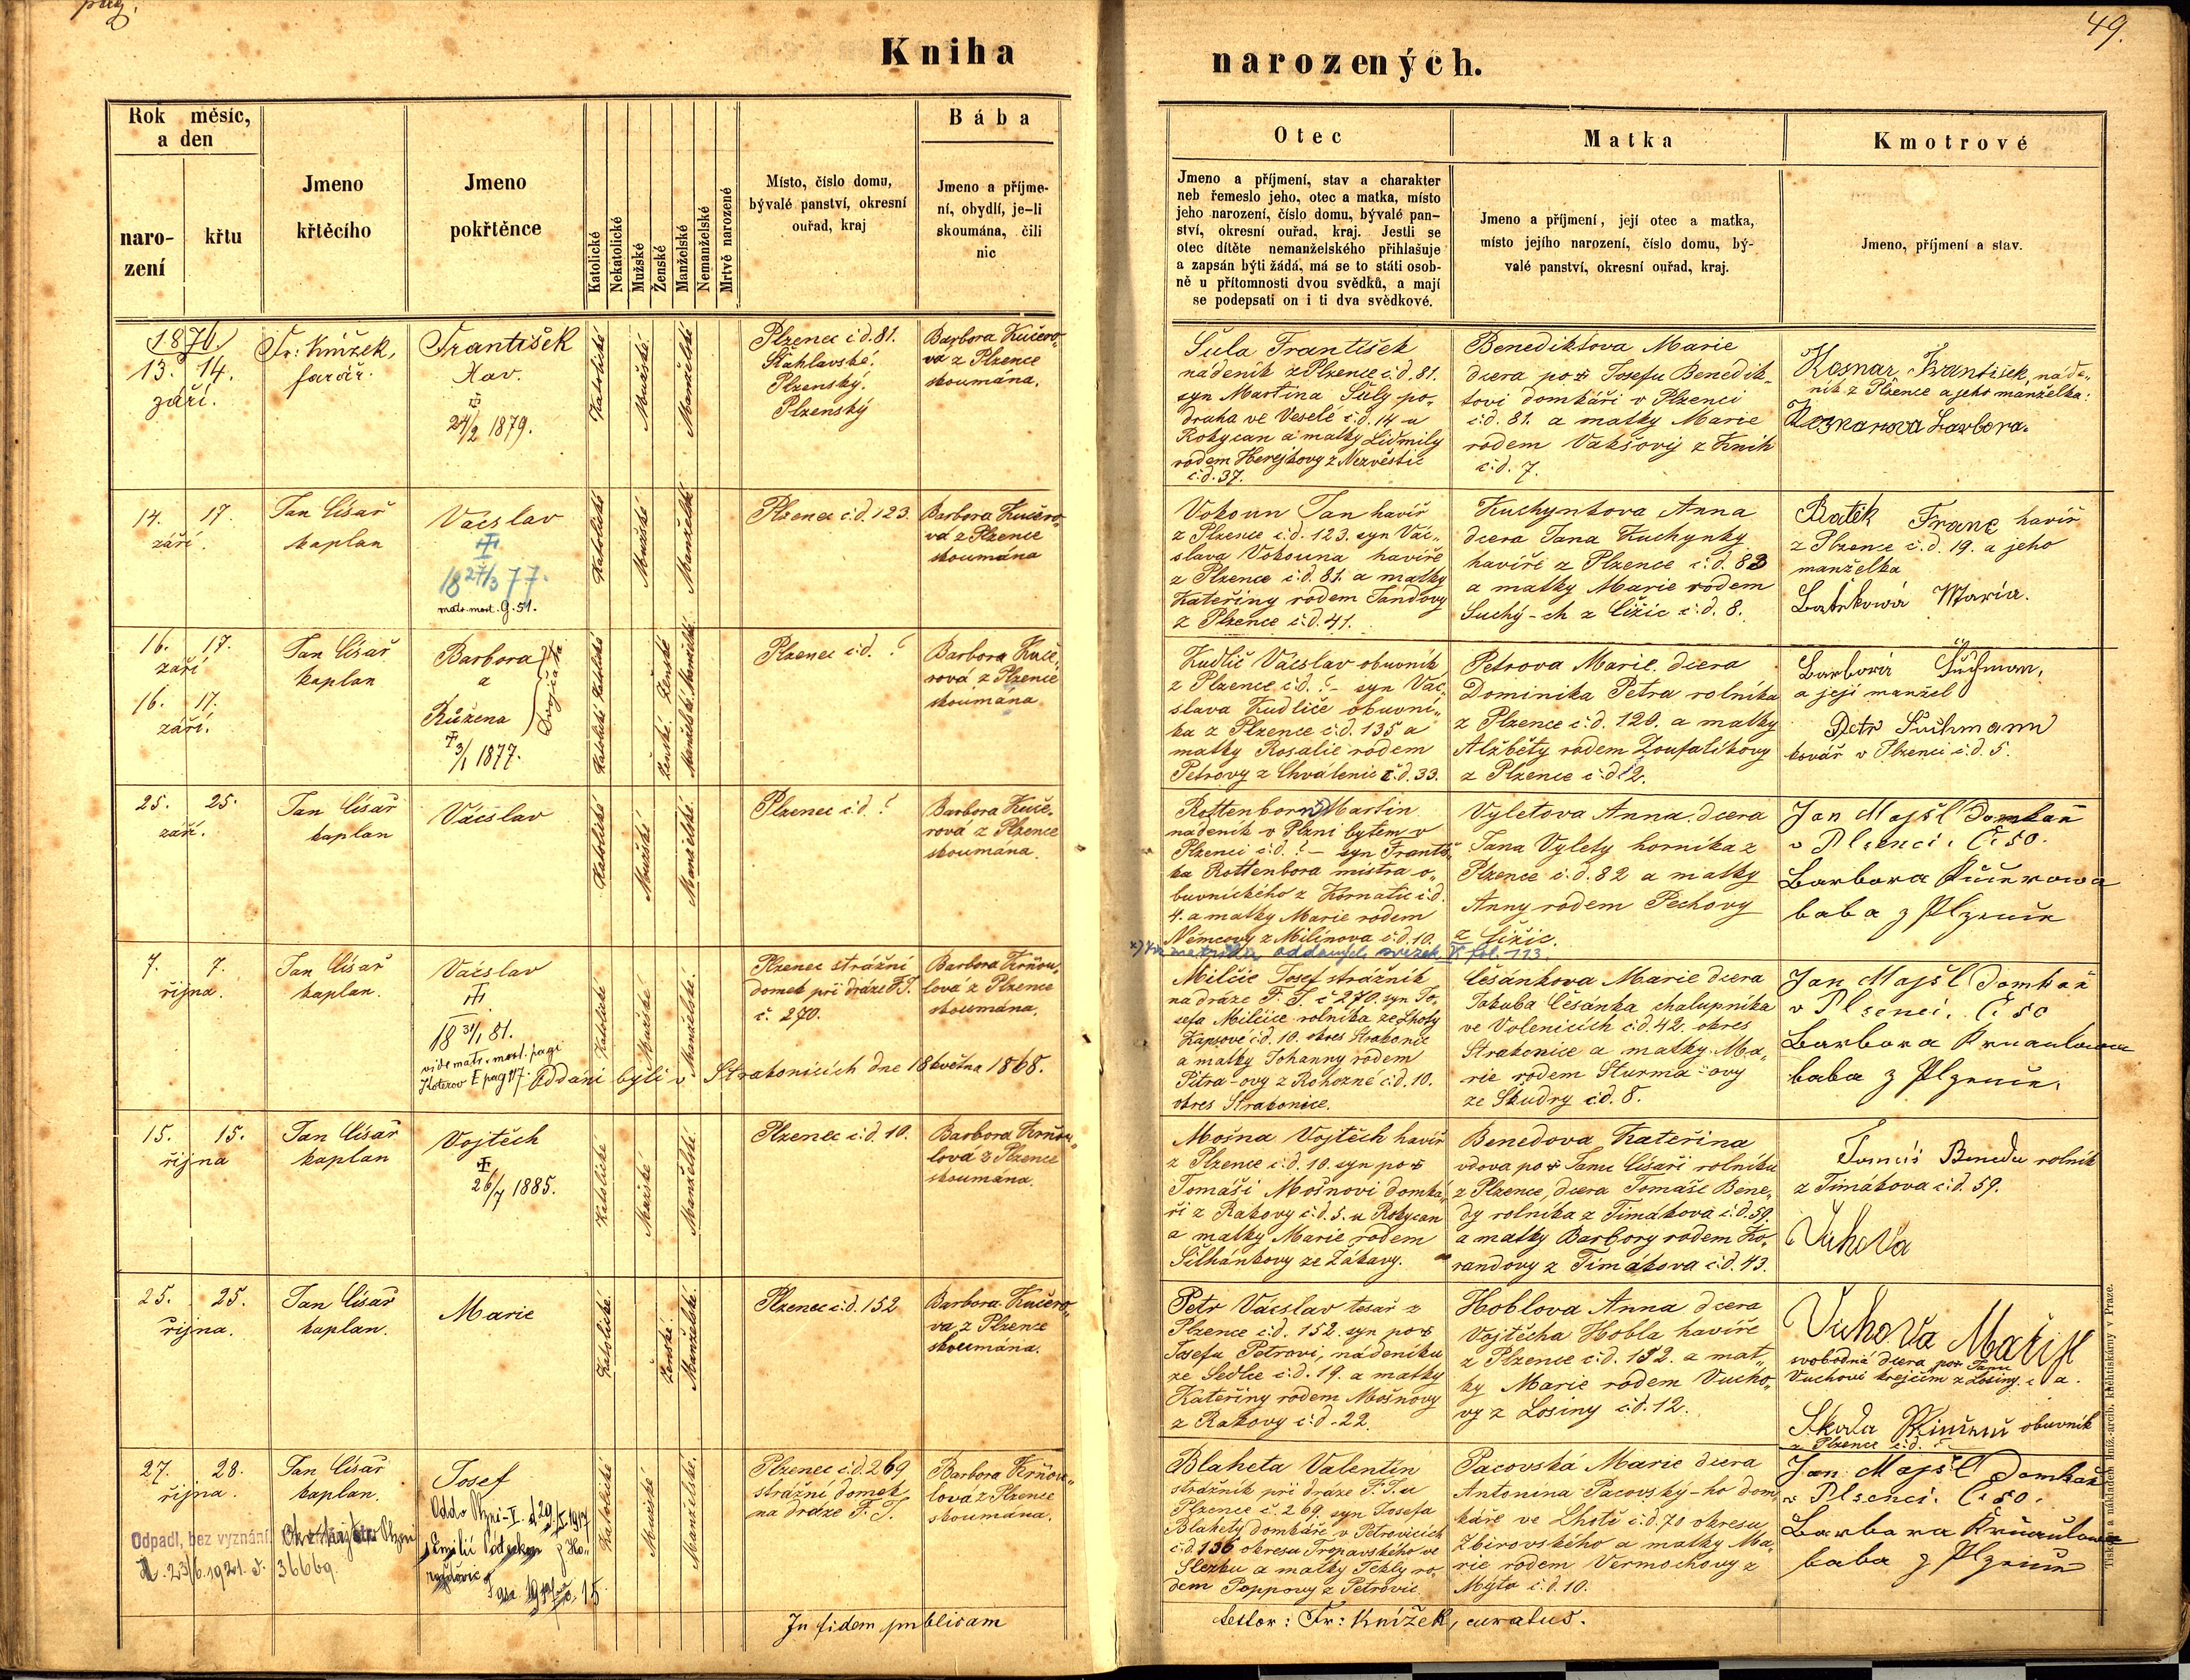 pag.
49.
Kniha
narozených.
Rok měsíc,
a den
naro-
zení
křtu
Jmeno
křtěcího
Jmeno
pokřtěnce
Katolické
Nekatolické
Mužské
Ženské
Manželské
Nemanželské
Mrtvě narozené
Místo, číslo domu,
bývalé panství, okresní
ouřad, kraj
Bába
Jmeno a příjme-
ní, obydlí, je-li
skoumána, čili
nic
Otec
Jmeno a příjmení, stav a charakter
neb řemeslo jeho, otec a matka, místo
jeho narození, číslo domu, bývalé pan-
ství, okresní ouřad, kraj. Jestli se
otec dítěte nemanželského přihlašuje
a zapsán býti žádá, má se to státi osob-
ně u přítomnosti dvou svědků, a mají
se podepsati on i ti dva svědkové.
Matka
Jmeno a příjmení, její otec a matka,
místo jejího narození, číslo domu, bý-
valé panství, okresní ouřad, kraj.
Kmotrové
Jmeno, příjmení a stav.
1876.
13. 14.
září.
Fr: Knížek,
farář.
František
Xav.
24/2 1879.
Katolické
Mužské
Manželské
Plzenec č:d. 81.
Šťáhlavské.
Plzenský.
Plzenský
Barbora Kučero-
va z Plzence
skoumána.
Šula František
nádeník z Plzence č.d. 81.
syn Martina Šuly po-
druha ve Veselé č.d. 14 u
Rokycan a matky Lidmily
rodem Herejkovy z Nezvěstic
č.d. 37.
Benediktova Marie
dcera po Josefu Benedik-
tovi domkáři v Plzenci
č:d. 81. a matky Marie
rodem Vakšovy z Knih
č:d. 7.
Kosnar František, náde-
ník z Plzence a jeho manželka:
Kosnarova Barbora.
14. 17.
září.
Jan Císař
kaplan
Vácslav
18 27/3 77.
matr. mort. g. 51.
Katolické
Mužské
Manželské
Plzenec č:d. 123.
Barbora Kučero-
va z Plzence
skoumána
Vokoun Jan havíř
z Plzence č:d. 123. syn Vác-
slava Vokouna havíře
z Plzence č:d. 81. a matky
Kateřiny rodem Jandovy
z Plzence č.d. 41.
Kuchynkova Anna
dcera Jana Kuchynky
havíře z Plzence č:d. 83
a matky Marie rodem
Suchý-ch z Čižic č:d. 8.
Batěk Franc havíř
z Plzence č.d. 19. a jeho
manželka
Batěková Maria.
16. 17.
září
16. 17.
září.
Jan Císař
kaplan
Barbora
a
Růžena
Dvojčata
3/1 1877.
Katolické Katolické
Ženské. Ženské
Manželské Manželské
Plzenec č:d. ?
Barbora Kuče-
rová z Plzence
skoumána
Kudlič Vácslav obuvník
z Plzence č:d. ? - syn Vác-
slava Kudliče obuvní-
ka z Plzence č:d. 135 a
matky Rosalie rodem
Petrovy z Chválenic č:d. 33.
Petrova Marie dcera
Dominika Petra rolníka
z Plzence č:d. 120. a matky
Alžběty rodem Zoufalíkovy
z Plzence č:d 12.
Barborá
a její manžel
kovář v Plzenci č:d. 5.
25. 25.
září.
Jan Císař
kaplan
Vácslav
Katolické
Mužské
Manželské.
Plzenec č:d. ?
Barbora Kuče-
rová z Plzence
skoumána.
Rottenborn Martin
nádeník v Plzni bytem v
Plzenci č:d. ? - syn Františ-
ka Rottenbora mistra o-
buvnického z Kornatic č:d.
4. a matky Marie rodem
Němcovy z Milínova č:d. 10.
Vyletova Anna dcera
Jana Vylety horníka z
Plzence č:d. 82 a matky
Anny rodem Pechovy
z Čižic.
Jan Majšl Domkař
v Plzenci. Č: 50.
Barbora Kučerowa
baba z Plzence
matrika oddaných, svazek V fol. 113.
7. 7.
října.
Jan Císař
kaplan.
Vácslav
18 31/1 81.
vide matr. mort. pagi
Koterov E pag 117. Oddáni byli v Strakonicích dne 18 května 1868.
Katolické
Mužské
Manželské.
Plzenec strážní
domek při dráze F.J.
č. 270.
Barbora Krňou-
lova z Plzence
skoumána.
Milčic Josef strážník
na dráze F. J. č 270. syn Jo-
sefa Milčice rolníka ze Lhoty
Kapsové č:d. 10. okres Strakonic
a matky Johanny rodem
Pitra-ovy z Rohozné č:d. 10.
okres Strakonice.
Česánkova Marie dcera
Jakuba Česánka chalupníka
ve Volenicích č:d. 42. okres
Strakonice a matky Ma-
rie rodem Šturma-ovy
ze Škudry č:d. 8.
Jan Majšl Domkař
v Plzenci. Č: 50
Barbora Krnaulowa
baba z Plzence.
15. 15.
října
Jan Císař
kaplan
Vojtěch
26/7 1885.
Katolické
Mužské
Manželské.
Plzenec č:d. 10.
Barbora Krňou-
lová z Plzence
skoumána.
Mošna Vojtěch havíř
z Plzence č:d. 10. syn po
Tomáši Mošnovi domká-
ři z Rakovy č:d. 5. u Rokycan
a matky Marie rodem
Šilhánkovy ze Žákavy.
Benedova Kateřina
vdova po Janu Císaři rolníku
z Plzence, dcera Tomáše Bene-
dy rolníka z Timákova č:d. 59.
a matky Barbory rodem Ko-
randovy z Timákova č:d. 43.
Tomáš Beneda rolník
z Timákova č:d. 59.
Vuhova
25. 25.
října.
Jan Císař
kaplan.
Marie
Katolické.
Ženské.
Manželské.
Plzenec č.d. 152
Barbora Kučero-
va z Plzence
skoumána.
Petr Vácslav tesař z
Plzence č:d. 152. syn po
Josefu Petrovi, nádeníku
ze Sedlce č:d. 19. a matky
Kateřiny rodem Mošnovy
z Rakovy č:d. 22.
Hoblova Anna dcera
Vojtěcha Hobla havíře
z Plzence č:d. 152. a mat-
ky Marie rodem Vucho-
vy z Losiny č:d. 12.
Vuhova
svobodná dcera po Janu
Vuchovi krejčím z Losiny. a
Skala obuvník
z Plzence č:d. ?
27. 28.
října.
Jan Císař
kaplan.
Josef
Katolické
Mužské
Manželské.
Plzenec č.d. 269
strážní domek
na dráze F. J.
Barbora Krňou-
lová z Plzence
skoumána.
Odpadl, bez vyznání.
23/6. 1921. č. 36669.
Blaheta Valentin
strážník při dráze F. J. u
Plzence č. 269. syn Josefa
Blahety domkáře v Petrovicích
č:d. 136 okresu Tropavského ve
Slezku a matky Tekly ro-
dem Poppovy z Petrovic
Pacovská Marie dcera
Antonína Pacovský-ho dom-
káře ve Lhotě č:d. 70 okresu
Zbirovského a matky Ma-
rie rodem Vermochovy z
Mýta č:d. 10.
Jan Majšl Domkař
v Plzenci. Č: 50.
Barbora Krnaulowa
baba z Plzence
In fidem publicam
testor: Fr: Knížek, curatus.
Tiskem a nákladem kníž.-arcib. knihtiskárny v Praze.